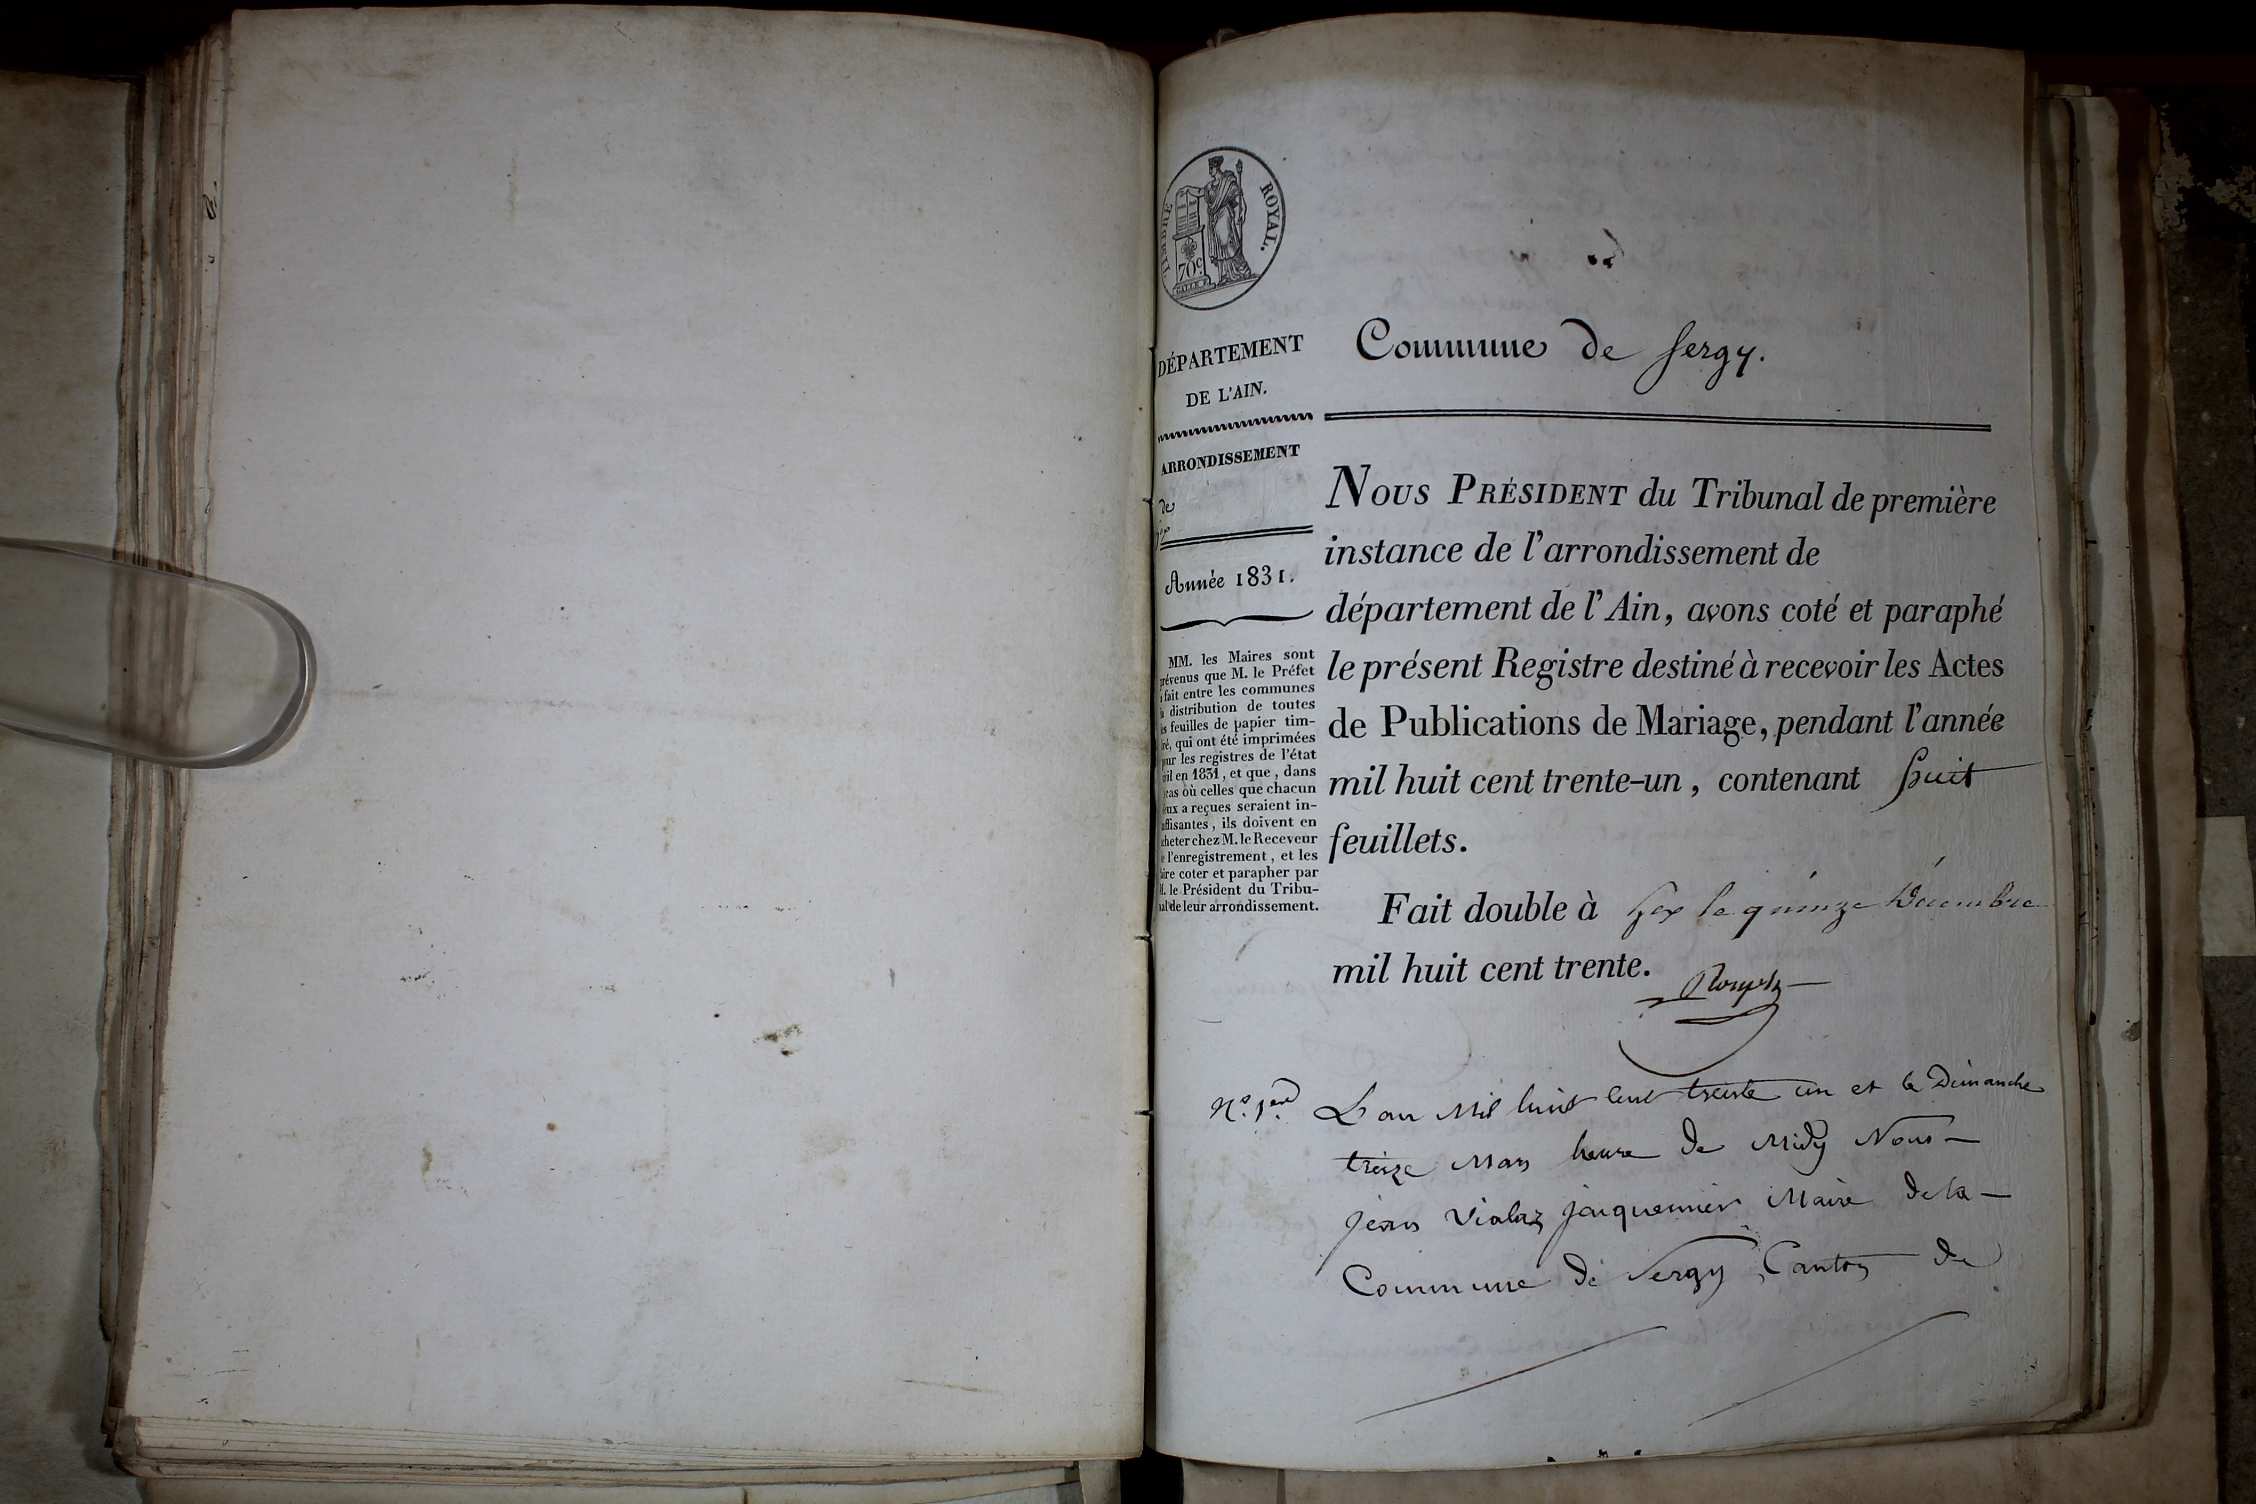 TIMBRE ROYAL.
70c
Commune de Sergy.
DÉPARTEMENT
DE L'AIN.
ARRONDISSEMENT
de
Gex
Année 1831.
MM. les Maires sont
prévenus que M. le Préfet
a fait entre les communes
la distribution de toutes
les feuilles de papier tim-
bré, qui ont été imprimées
pour les registres de l'état
civil en 1831, et que, dans
cas où celles que chacun
d'eux a reçues seraient in-
suffisantes, ils doivent en
acheter chez M. le Receveur
de l'enregistrement, et les
faire coter et parapher par
M. le Président du Tribu-
nal de leur arrondissement.
NOUS PRÉSIDENT du Tribunal de première
instance de l'arrondissement de
département de l'Ain, avons coté et paraphé
le présent Registre destiné à recevoir les Actes
de Publications de Mariage, pendant l'année
mil huit cent trente-un, contenant huit
feuillets.
Fait double à Gex le quinze Décembre
mil huit cent trente.
N.o 1.er L'an Mil huit Cent trente un et le Dimanche
treize Mars heure de Midy Nous
Jean Vialaz Jacquemier Maire de la
Commune de Sergy, Canton de